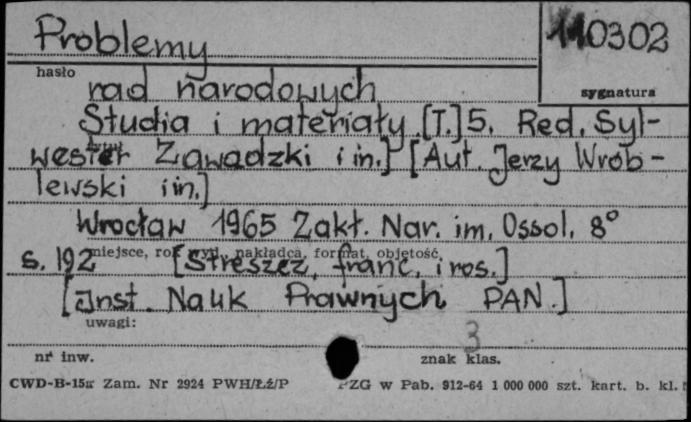 Problemy
110302
hasło
sygnatura
rad narodowych
Studia i materiały. [T.] 5. Red. Syl-
wester Zawadzki i in.] [Aut. Jerzy Wrób-
lewski i in.]
Wrocław 1965 Zakł. Nar. im. Ossol. 8°
miejsce, rok wyd., nakładca, format, objętość
s. 192 [Streszcz. franc. i ros.]
[Inst. Nauk Prawnych PAN.]
uwagi:
3
nr inw.
znak klas.
CWD-B-15a Zam. Nr 2924 PWH/Łź/P PZG w Pab. 912-64 1 000 000 szt. kart. b. kl.